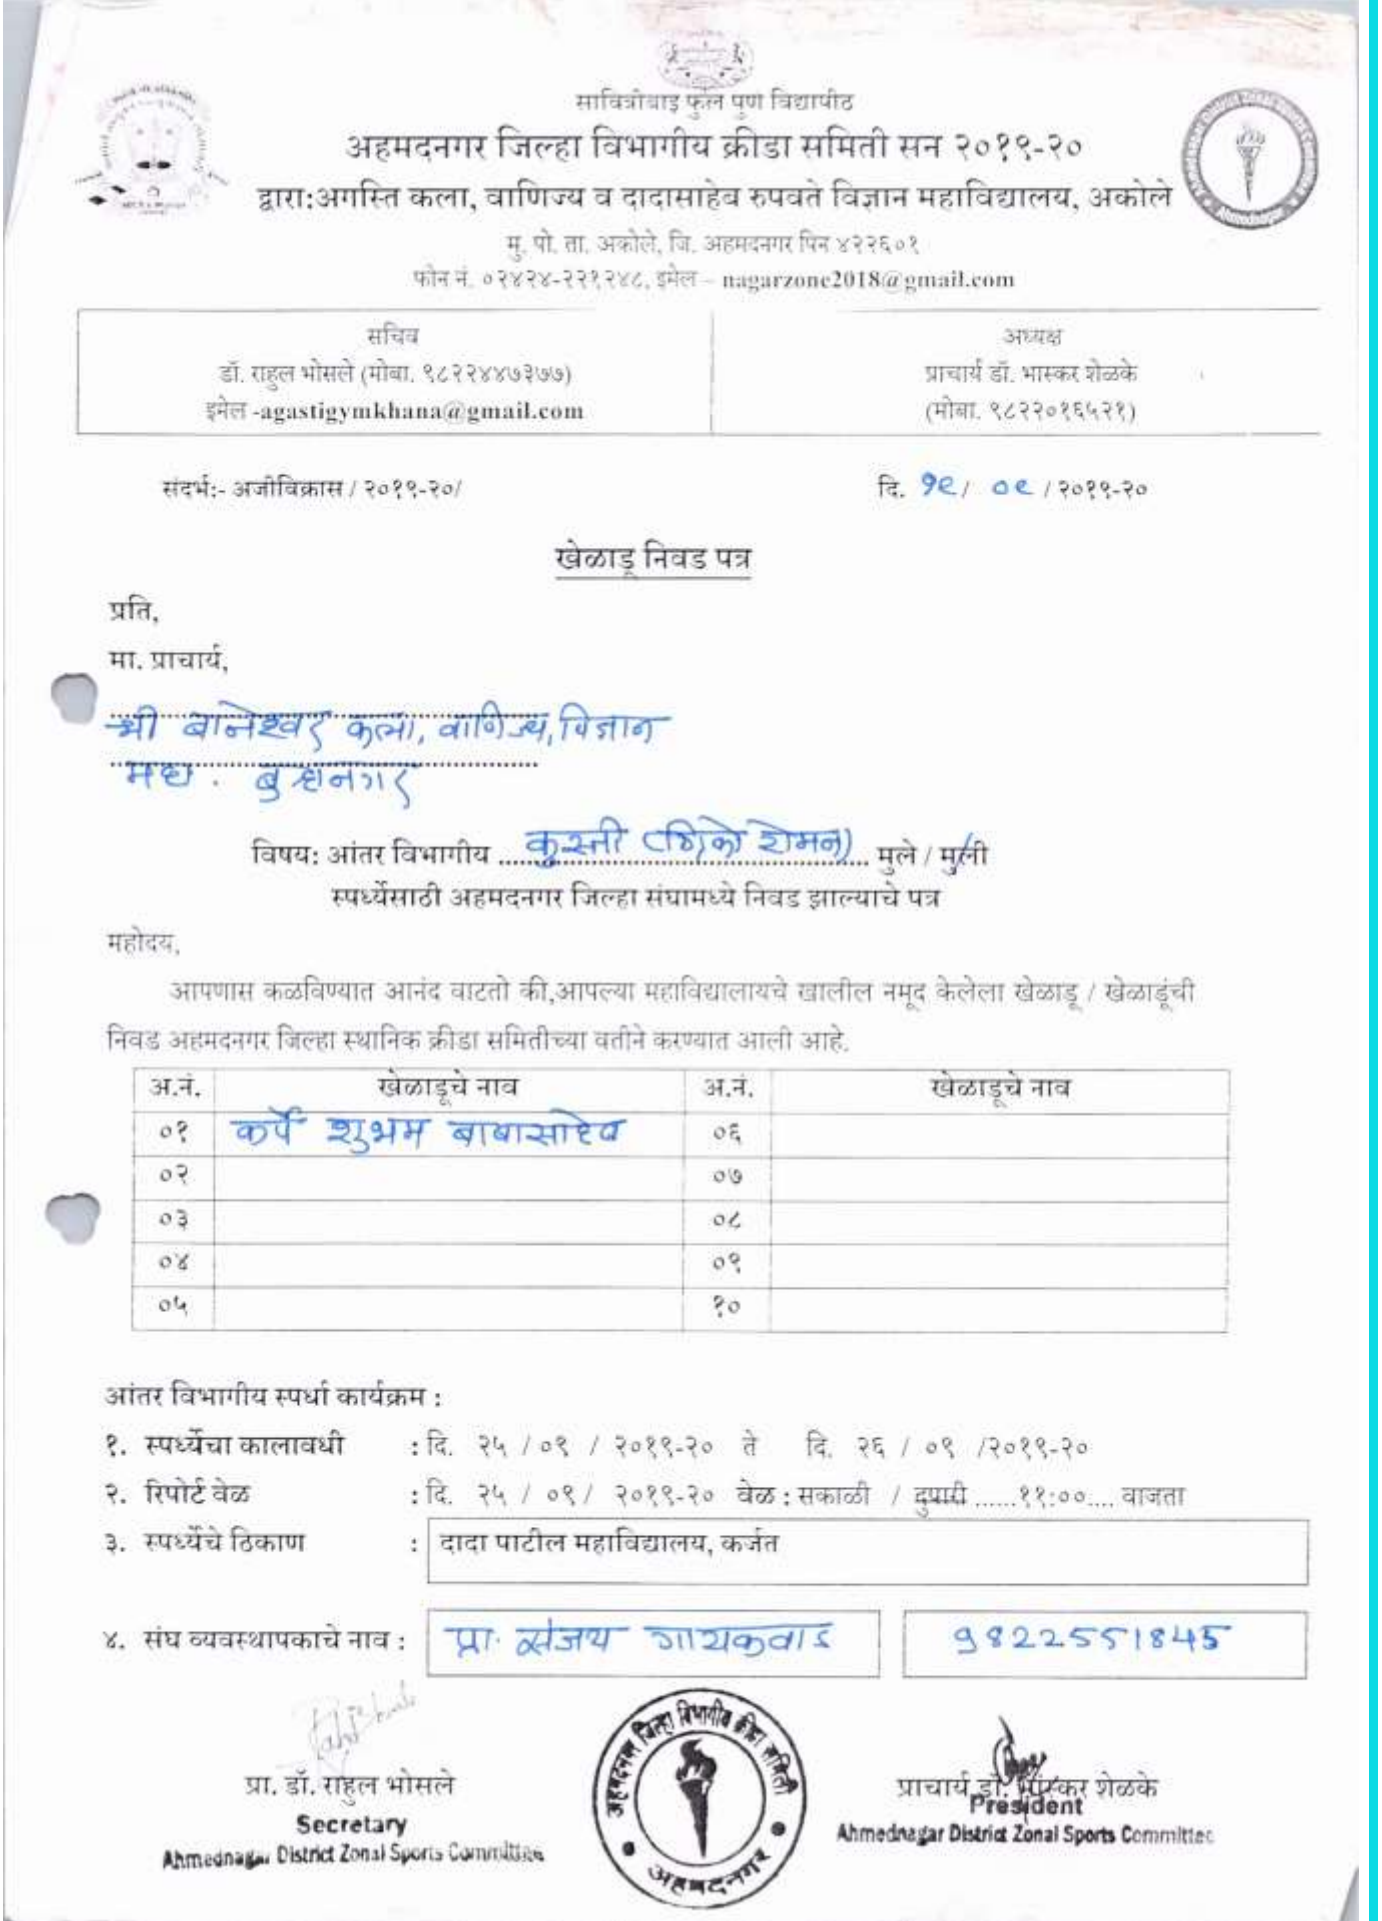 सावित्रीबाइ फुले पुणे विद्यापीठ
अहमदनगर जिल्हा विभागीय क्रीडा समिती सन २०१९-२०
द्वारा:अगस्ति कला, वाणिज्य व दादासाहेब रुपवते विज्ञान महाविद्यालय, अकोले
मु. पो. ता. अकोले, जि. अहमदनगर पिन ४२२६०१
फोन नं. ०२४२४-२२१२४८, इमेल – nagarzone2018@gmail.com
Ahmednagar
सचिव
डॉ. राहुल भोसले (मोबा. ९८२२४४७३७७)
इमेल -agastigymkhana@gmail.com
अध्यक्ष
प्राचार्य डॉ. भास्कर शेळके
(मोबा. ९८२२०१६५२१)
संदर्भ:- अजीविक्रास / २०१९-२०/
दि. १९/ ०९ / २०१९-२०
खेळाडू निवड पत्र
प्रति,
मा. प्राचार्य,
श्री बानेश्वर कला, वाणिज्य, विज्ञान
मद्य. बुऱ्हानगर
विषय: आंतर विभागीय ..कुस्ती (ग्रिको रोमन).. मुले / मुली
स्पर्ध्येसाठी अहमदनगर जिल्हा संघामध्ये निवड झाल्याचे पत्र
महोदय,
आपणास कळविण्यात आनंद वाटतो की,आपल्या महाविद्यालायचे खालील नमूद केलेला खेळाडू / खेळाडूंची
निवड अहमदनगर जिल्हा स्थानिक क्रीडा समितीच्या वतीने करण्यात आली आहे.
अ.नं. खेळाडूचे नाव अ.नं. खेळाडूचे नाव
०१ कर्पे शुभम बाबासाहेब ०६
०२ ०७
०३ ०८
०४ ०९
०५ १०
आंतर विभागीय स्पर्धा कार्यक्रम :
१. स्पर्ध्येचा कालावधी : दि. २५ / ०९ / २०१९-२० ते दि. २६ / ०९ /२०१९-२०
२. रिपोर्ट वेळ : दि. २५ / ०९/ २०१९-२० वेळ : सकाळी / दुपारी ......११:००.... वाजता
३. स्पर्ध्येचे ठिकाण : दादा पाटील महाविद्यालय, कर्जत
४. संघ व्यवस्थापकाचे नाव : प्रा. संजय गायकवाड 9822551845
प्रा. डॉ. राहुल भोसले
Secretary
Ahmednagar District Zonal Sports Committee
अहमदनगर जिल्हा विभागीय क्रीडा समिती
अहमदनगर
प्राचार्य डॉ. भास्कर शेळके
President
Ahmednagar District Zonal Sports Committee